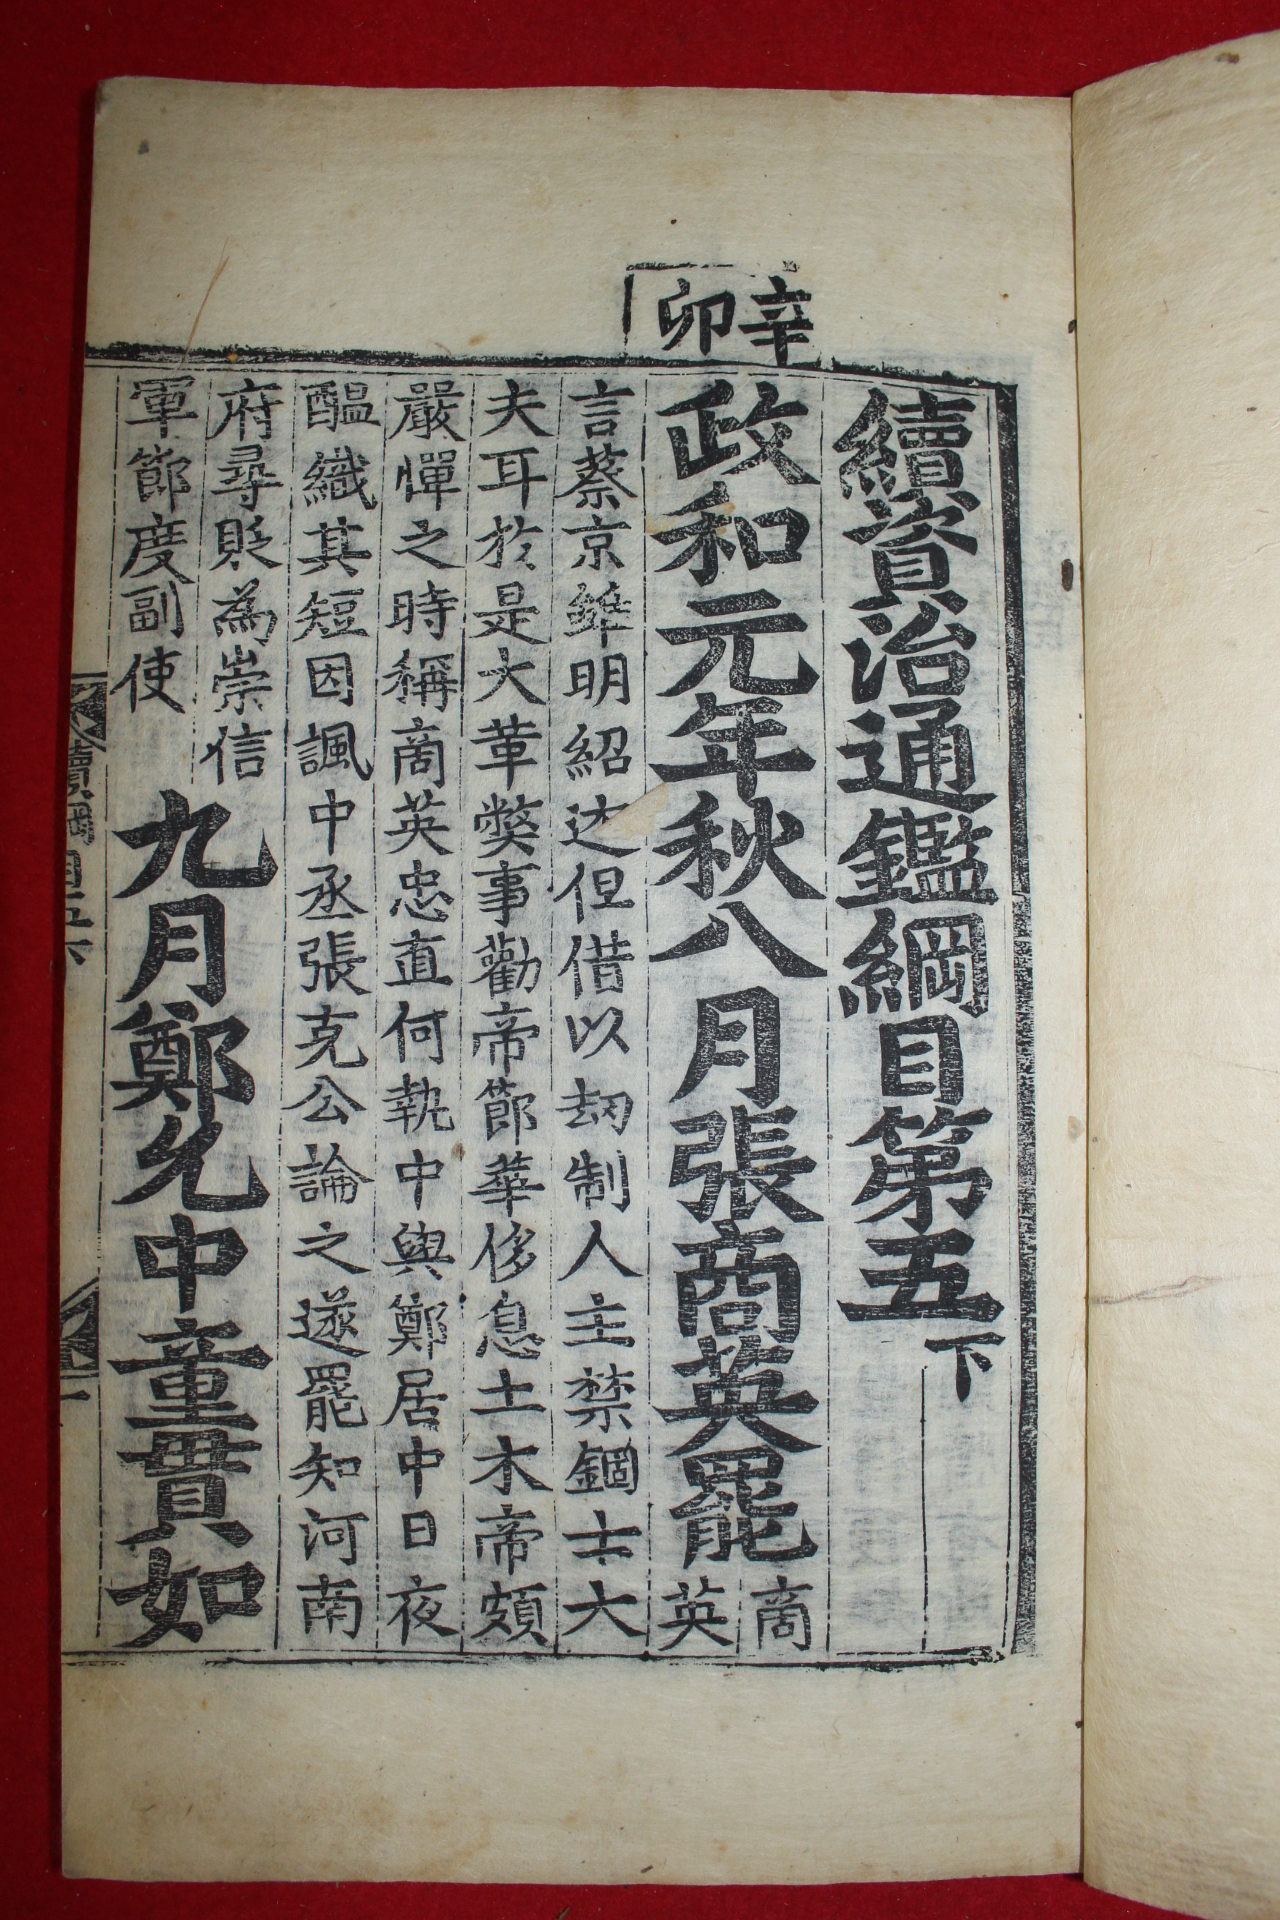 續資治通鑑綱目第五下
辛卯
政和元年秋八月張商英罷商英
言蔡京雖明紹述但借以劫制人主禁錮士大
夫耳於是大革弊事勸帝節華侈息土木帝頗
嚴憚之時稱商英忠直何執中與鄭居中日夜
醞織其短因諷中丞張克公論之遂罷知河南
府尋貶為崇信
軍節度副使
九月鄭允中童貫如
續綱目五下
一